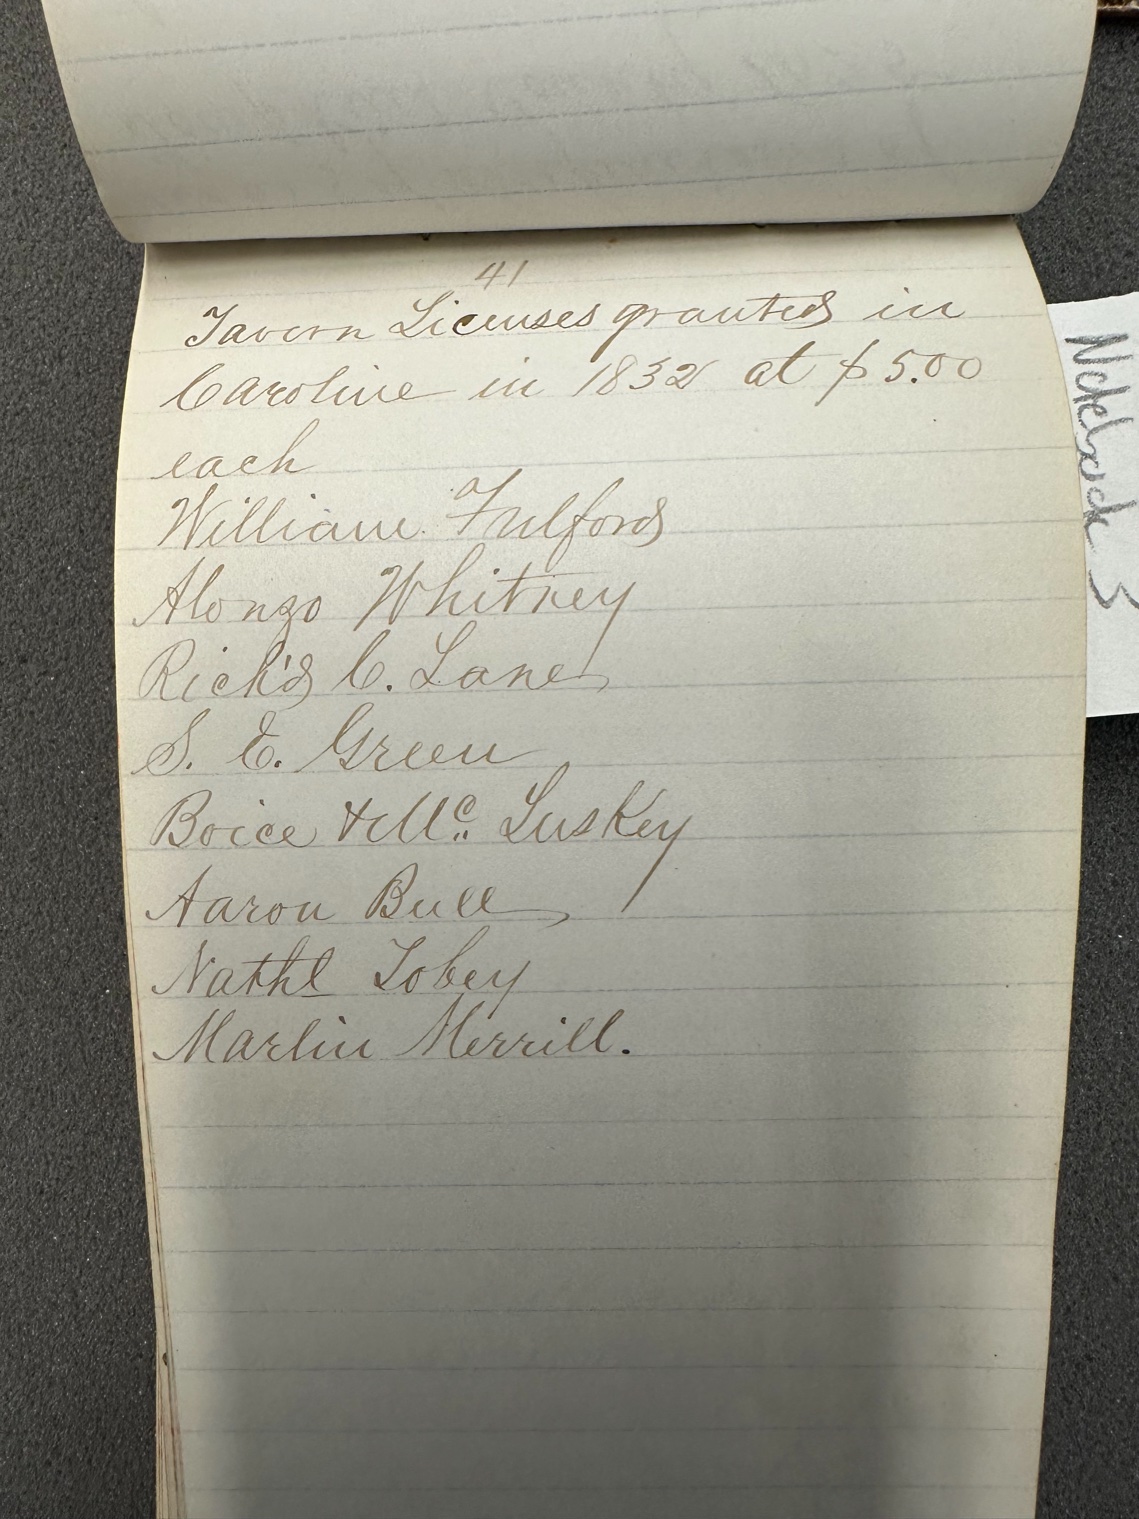 41
Tavern Licenses granted in
Caroline in 1832 at $5.00
each
William Fulford
Alonzo Whitney
Rich'd C. Lane
S. E. Green
Boice & Mc. Luskey
Aaron Bull
Nathl Tobey
Marlin Merrill.
Notebook 3